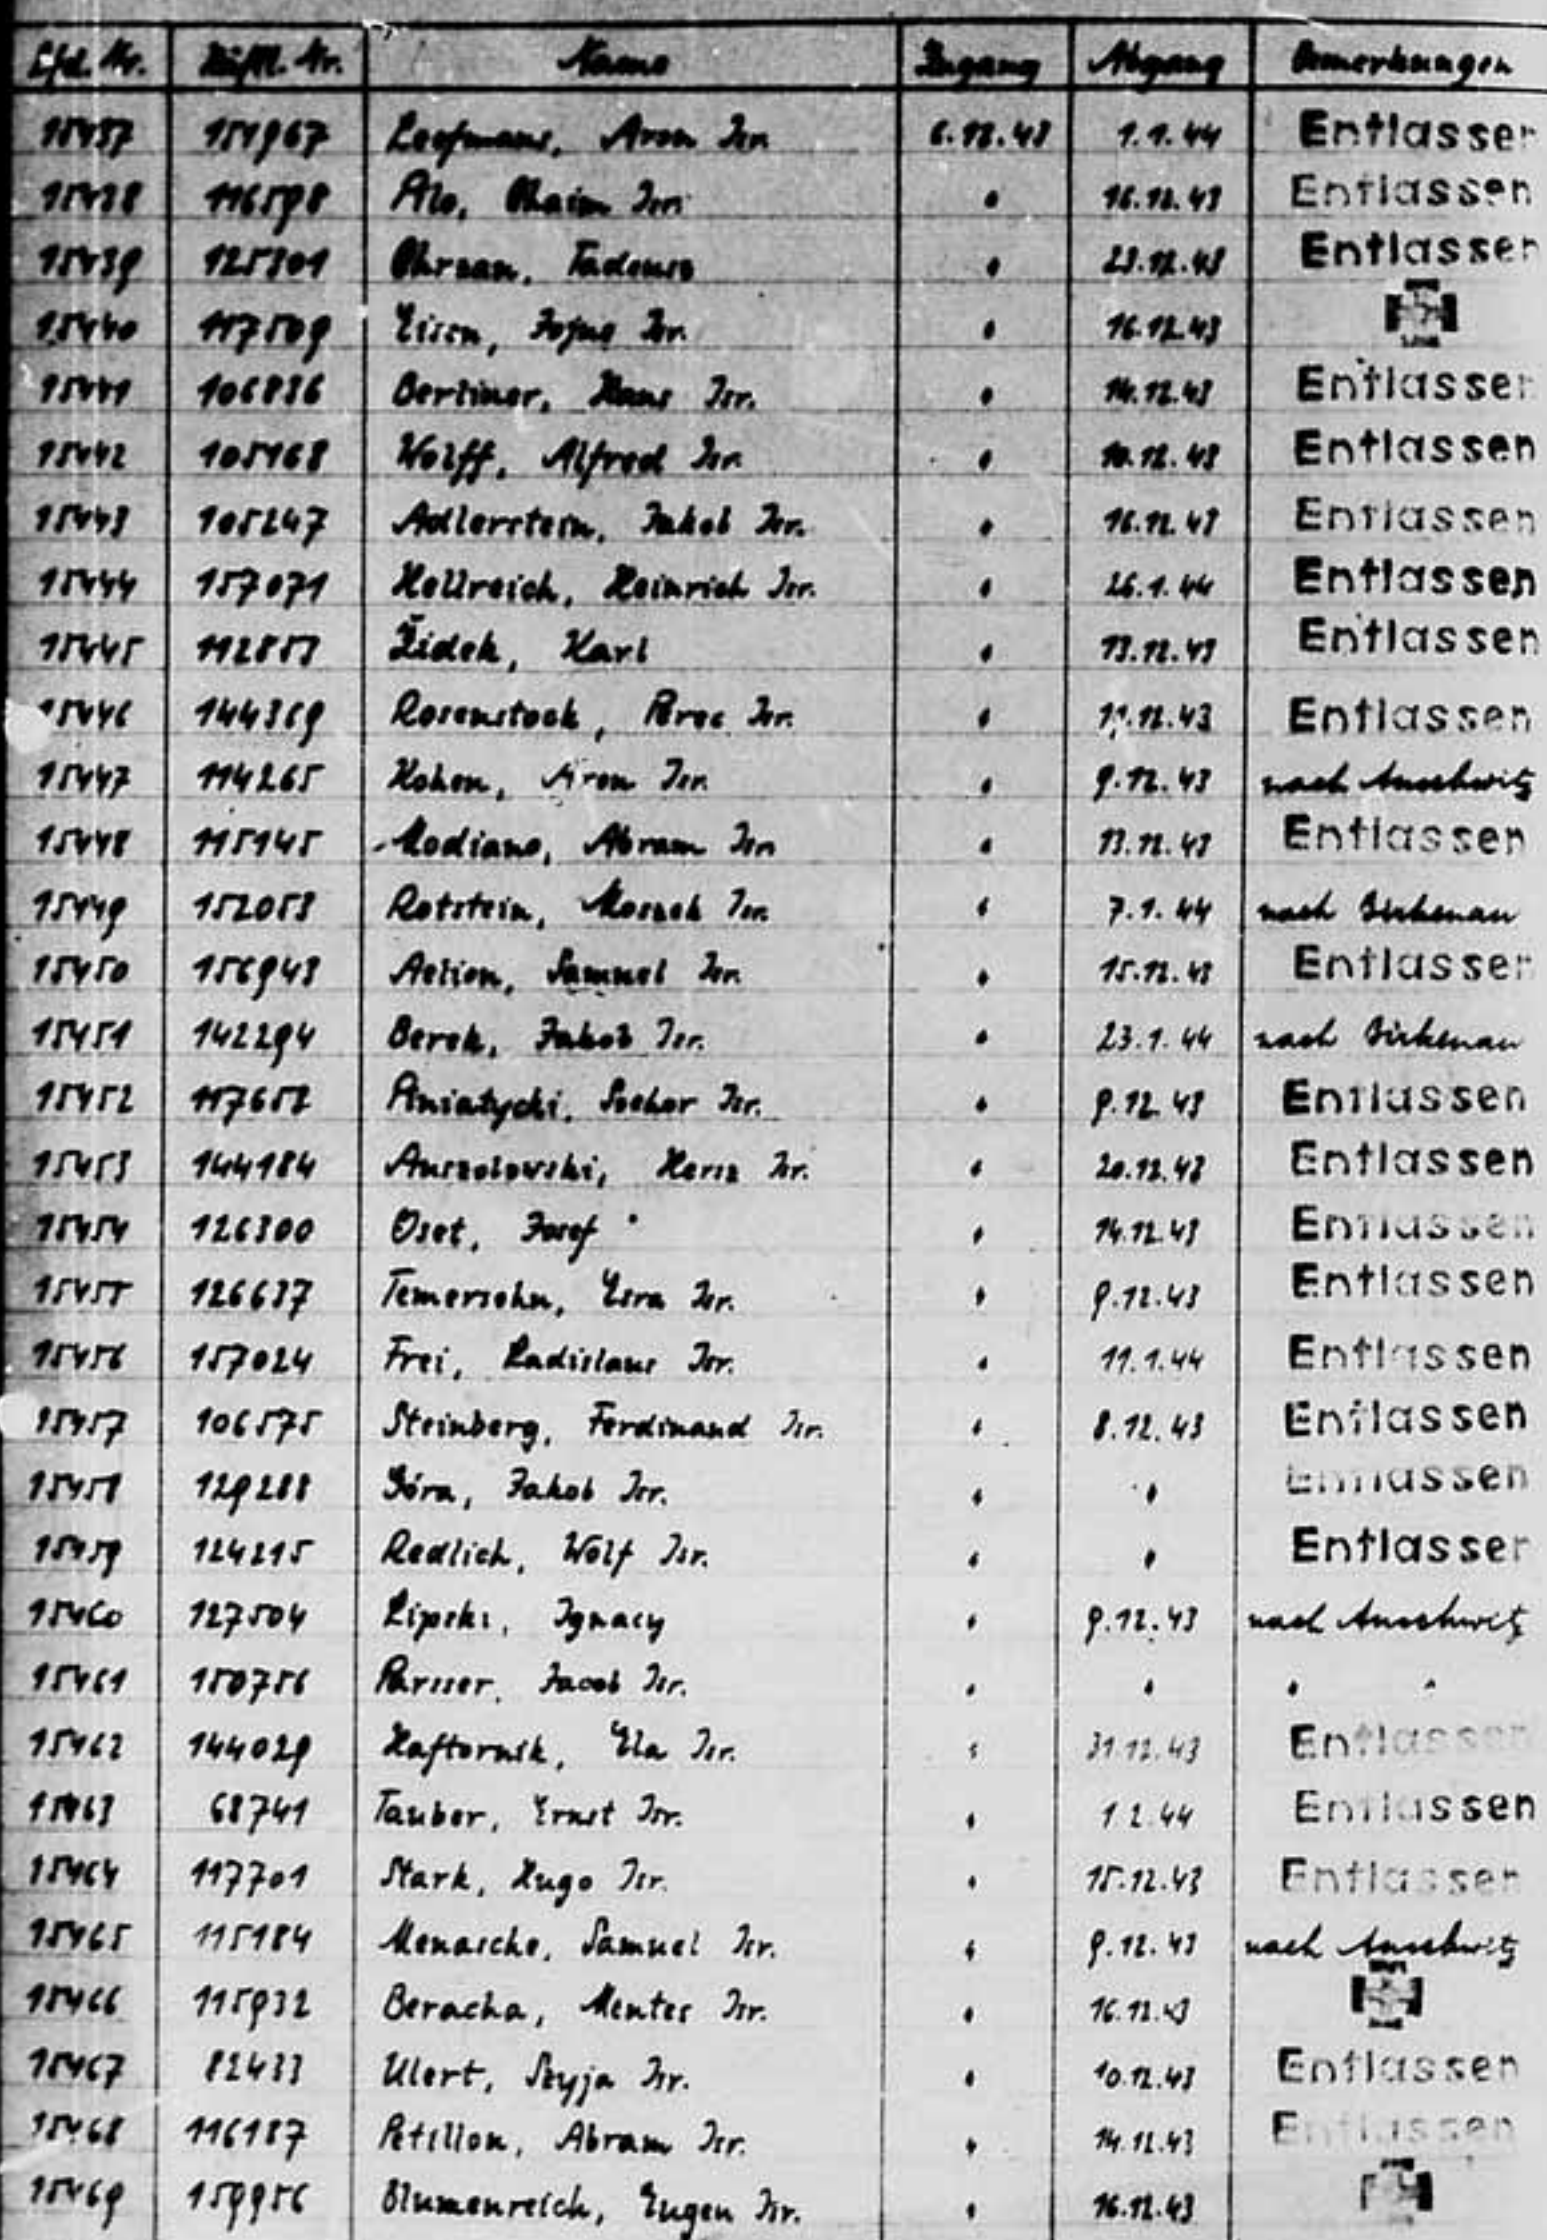 Lfd. Nr. Häftl. Nr. Name Zugang Abgang Bemerkungen
15437 151967 Leefmans, Aron Isr. 6.12.43 1.1.44 Entlassen
15438 116598 Alo, Chaim Isr. " 16.12.43 Entlassen
15439 125301 Tadeusz " 23.12.43 Entlassen
15440 117509 Eisen, Isr. " 16.12.43
15441 106836 Berliner, Hans Isr. " 14.12.43 Entlassen
15442 105168 Wolff, Alfred Isr. " 10.12.43 Entlassen
15443 105247 Adlerstein, Jakob Isr. " 16.12.43 Entlassen
15444 157071 Hellreich, Heinrich Isr. " 26.1.44 Entlassen
15445 112853 Židek, Karl " 13.12.43 Entlassen
15446 144369 Rosenstock, Perec Isr. " 11.12.43 Entlassen
15447 114265 Kohen, Aron Isr. " 9.12.43 nach Auschwitz
15448 115145 Modiano, Abram Isr. " 13.12.43 Entlassen
15449 152053 Rotstein, Moszek Isr. " 7.1.44 nach Birkenau
15450 156943 Aelion, Samuel Isr. " 15.12.43 Entlassen
15451 142294 Berek, Jakob Isr. " 23.1.44 nach Birkenau
15452 117652 Piniatycki, Isr. " 9.12.43 Entlassen
15453 144184 Hersz Isr. " 20.12.43 Entlassen
15454 126300 Oset, Josef " 14.12.43 Entlassen
15455 126637 Temersohn, Esra Isr. " 9.12.43 Entlassen
15456 157024 Frei, Ladislaus Isr. " 11.1.44 Entlassen
15457 106575 Steinberg, Ferdinand Isr. " 8.12.43 Entlassen
15458 129288 Góra, Jakob Isr. " " Entlassen
15459 124215 Redlich, Wolf Isr. " " Entlassen
15460 127504 Lipski, Ignacy " 9.12.43 nach Auschwitz
15461 150756 Parsser, Jacob Isr. " " " "
15462 144029 Haftornik, Ela Isr. " 31.12.43 Entlassen
15463 68741 Tauber, Ernst Isr. " 1.2.44 Entlassen
15464 117701 Stark, Hugo Isr. " 15.12.43 Entlassen
15465 115184 Menasche, Samuel Isr. " 9.12.43 nach Auschwitz
15466 115932 Beracha, Mentes Isr. " 16.12.43
15467 82433 Ulert, Szyja Isr. " 10.12.43 Entlassen
15468 116187 Petillon, Abram Isr. " 14.12.43 Entlassen
15469 159956 Blumenreich, Eugen Isr. " 16.12.43